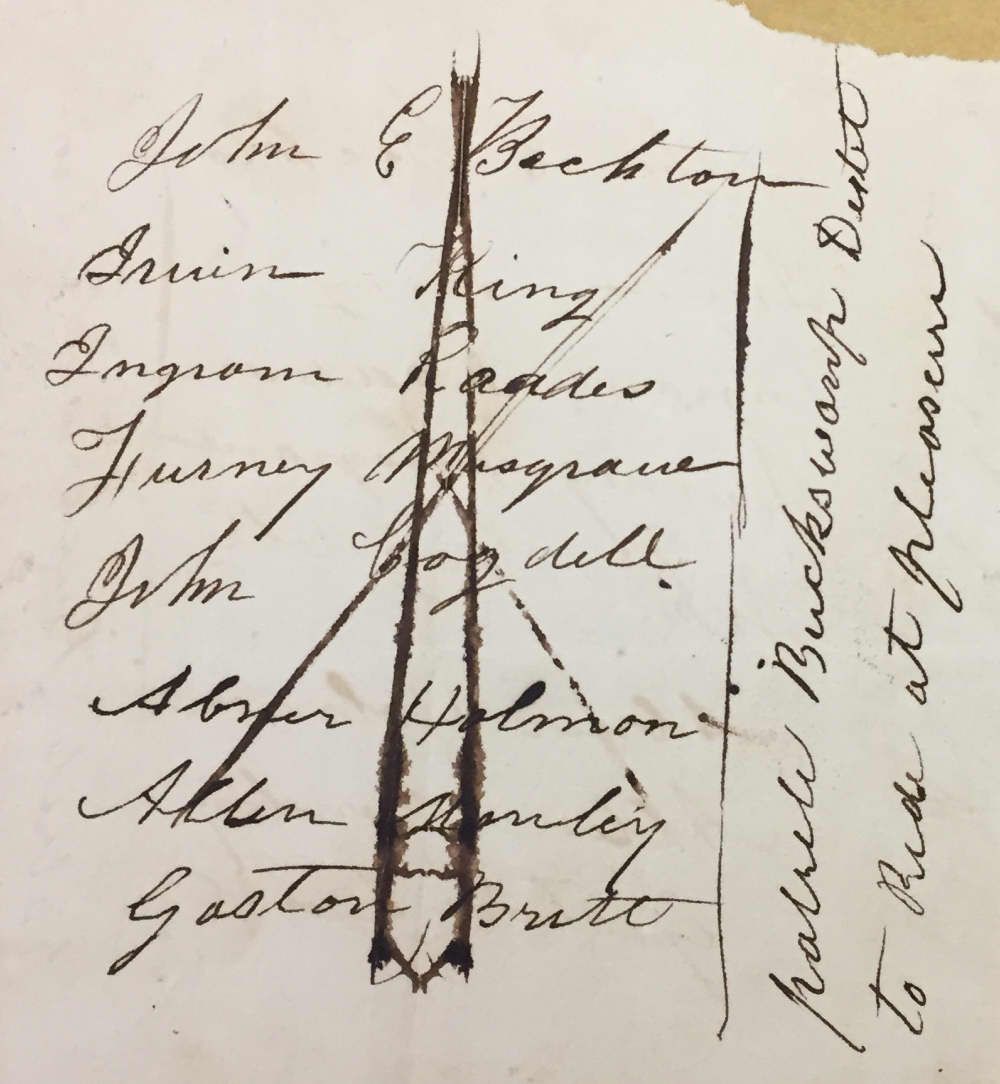 John E Beckton
Irvin King
Ingram Raades
Furney Musgrave
John Cogdell.
Abner Holmon
Allen Manley
Gaston Britt
Buckswamp Destt
to Ride at pleaseur